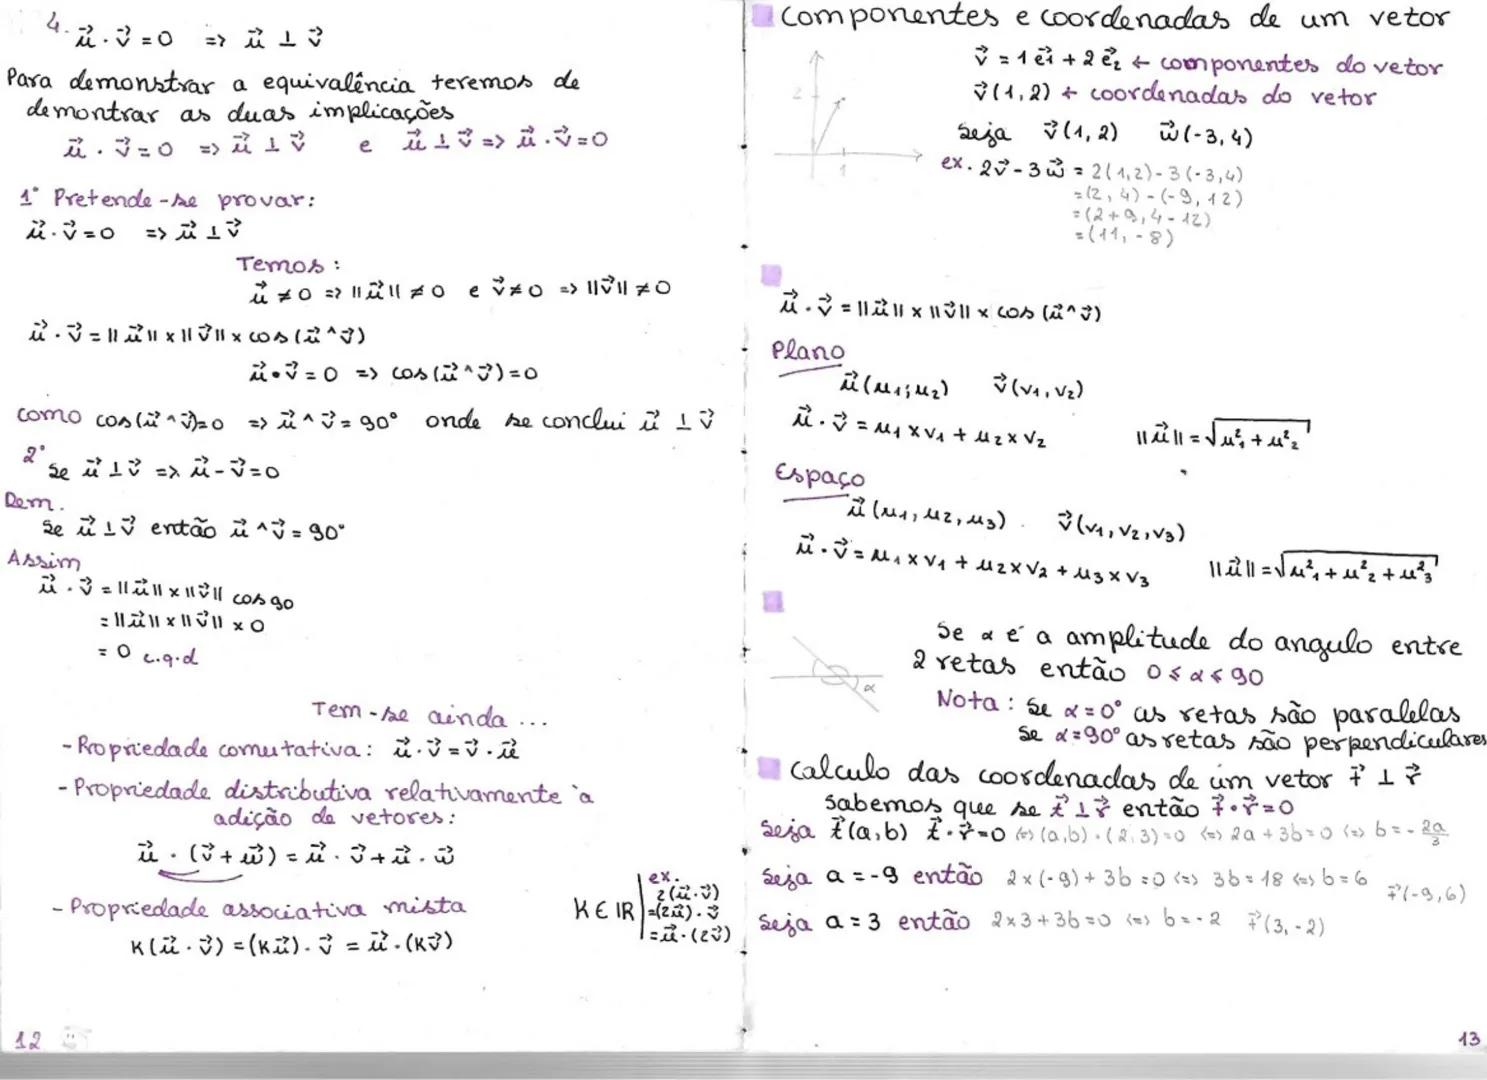 4. u⃗ . v⃗ = 0 => u⃗ ⊥ v⃗
Para demonstrar a equivalência teremos de
demontrar as duas implicações
u⃗ . v⃗ = 0 => u⃗ ⊥ v⃗ e u⃗ ⊥ v⃗ => u⃗ . v⃗ = 0
1° Pretende-se provar:
u⃗ . v⃗ = 0 => u⃗ ⊥ v⃗
Temos:
u⃗ ≠ 0 => ||u⃗|| ≠ 0 e v⃗ ≠ 0 => ||v⃗|| ≠ 0
u⃗ . v⃗ = ||u⃗|| x ||v⃗|| x cos (u⃗ ^ v⃗)
u⃗ • v⃗ = 0 => cos (u⃗ ^ v⃗) = 0
como cos (u⃗ ^ v⃗) = 0 => u⃗ ^ v⃗ = 90° onde se conclui u⃗ ⊥ v⃗
2°
se u⃗ ⊥ v⃗ => u⃗ - v⃗ = 0
Dem.
se u⃗ ⊥ v⃗ então u⃗ ^ v⃗ = 90°
Assim
u⃗ . v⃗ = ||u⃗|| x ||v⃗|| cos 90
= ||u⃗|| x ||v⃗|| x 0
= 0 c.q.d
Tem-se ainda ...
- Propriedade comutativa: u⃗ . v⃗ = v⃗ . u⃗
- Propriedade distributiva relativamente à
adição de vetores:
u⃗ . (v⃗ + w⃗) = u⃗ . v⃗ + u⃗ . w⃗
- Propriedade associativa mista
K(u⃗ . v⃗) = (Ku⃗) . v⃗ = u⃗ . (Kv⃗)
K ∈ IR
ex.
2(u⃗ . v⃗)
= (2u⃗) . v⃗
= u⃗ . (2v⃗)
12
Componentes e coordenadas de um vetor
2
1
v⃗ = 1 e⃗1 + 2 e⃗2 ← componentes do vetor
v⃗ (1, 2) ← coordenadas do vetor
seja v⃗ (1, 2) w⃗ (-3, 4)
ex. 2v⃗ - 3w⃗ = 2(1,2) - 3(-3,4)
= (2, 4) - (-9, 12)
= (2+9, 4-12)
= (11, -8)
u⃗ . v⃗ = ||u⃗|| x ||v⃗|| x cos (u⃗ ^ v⃗)
Plano
u⃗ (u1; u2) v⃗ (v1, v2)
u⃗ . v⃗ = u1 x v1 + u2 x v2 ||u⃗|| = √(u²1 + u²2)
Espaço
u⃗ (u1, u2, u3) . v⃗ (v1, v2, v3)
u⃗ . v⃗ = u1 x v1 + u2 x v2 + u3 x v3 ||u⃗|| = √(u²1 + u²2 + u²3)
α
Se α é a amplitude do angulo entre
2 retas então 0 ≤ α ≤ 90
Nota: se α = 0° as retas são paralelas
se α = 90° as retas são perpendiculares
Calculo das coordenadas de um vetor t⃗ ⊥ r⃗
Sabemos que se t⃗ ⊥ r⃗ então t⃗ . r⃗ = 0
Seja t⃗ (a,b) t⃗ . r⃗ = 0 <=> (a,b) . (2,3) = 0 <=> 2a + 3b = 0 <=> b = - 2a/3
Seja a = -9 então 2x(-9) + 3b = 0 <=> 3b = 18 <=> b = 6 t⃗ (-9,6)
Seja a = 3 então 2x3 + 3b = 0 <=> b = -2 t⃗ (3,-2)
13